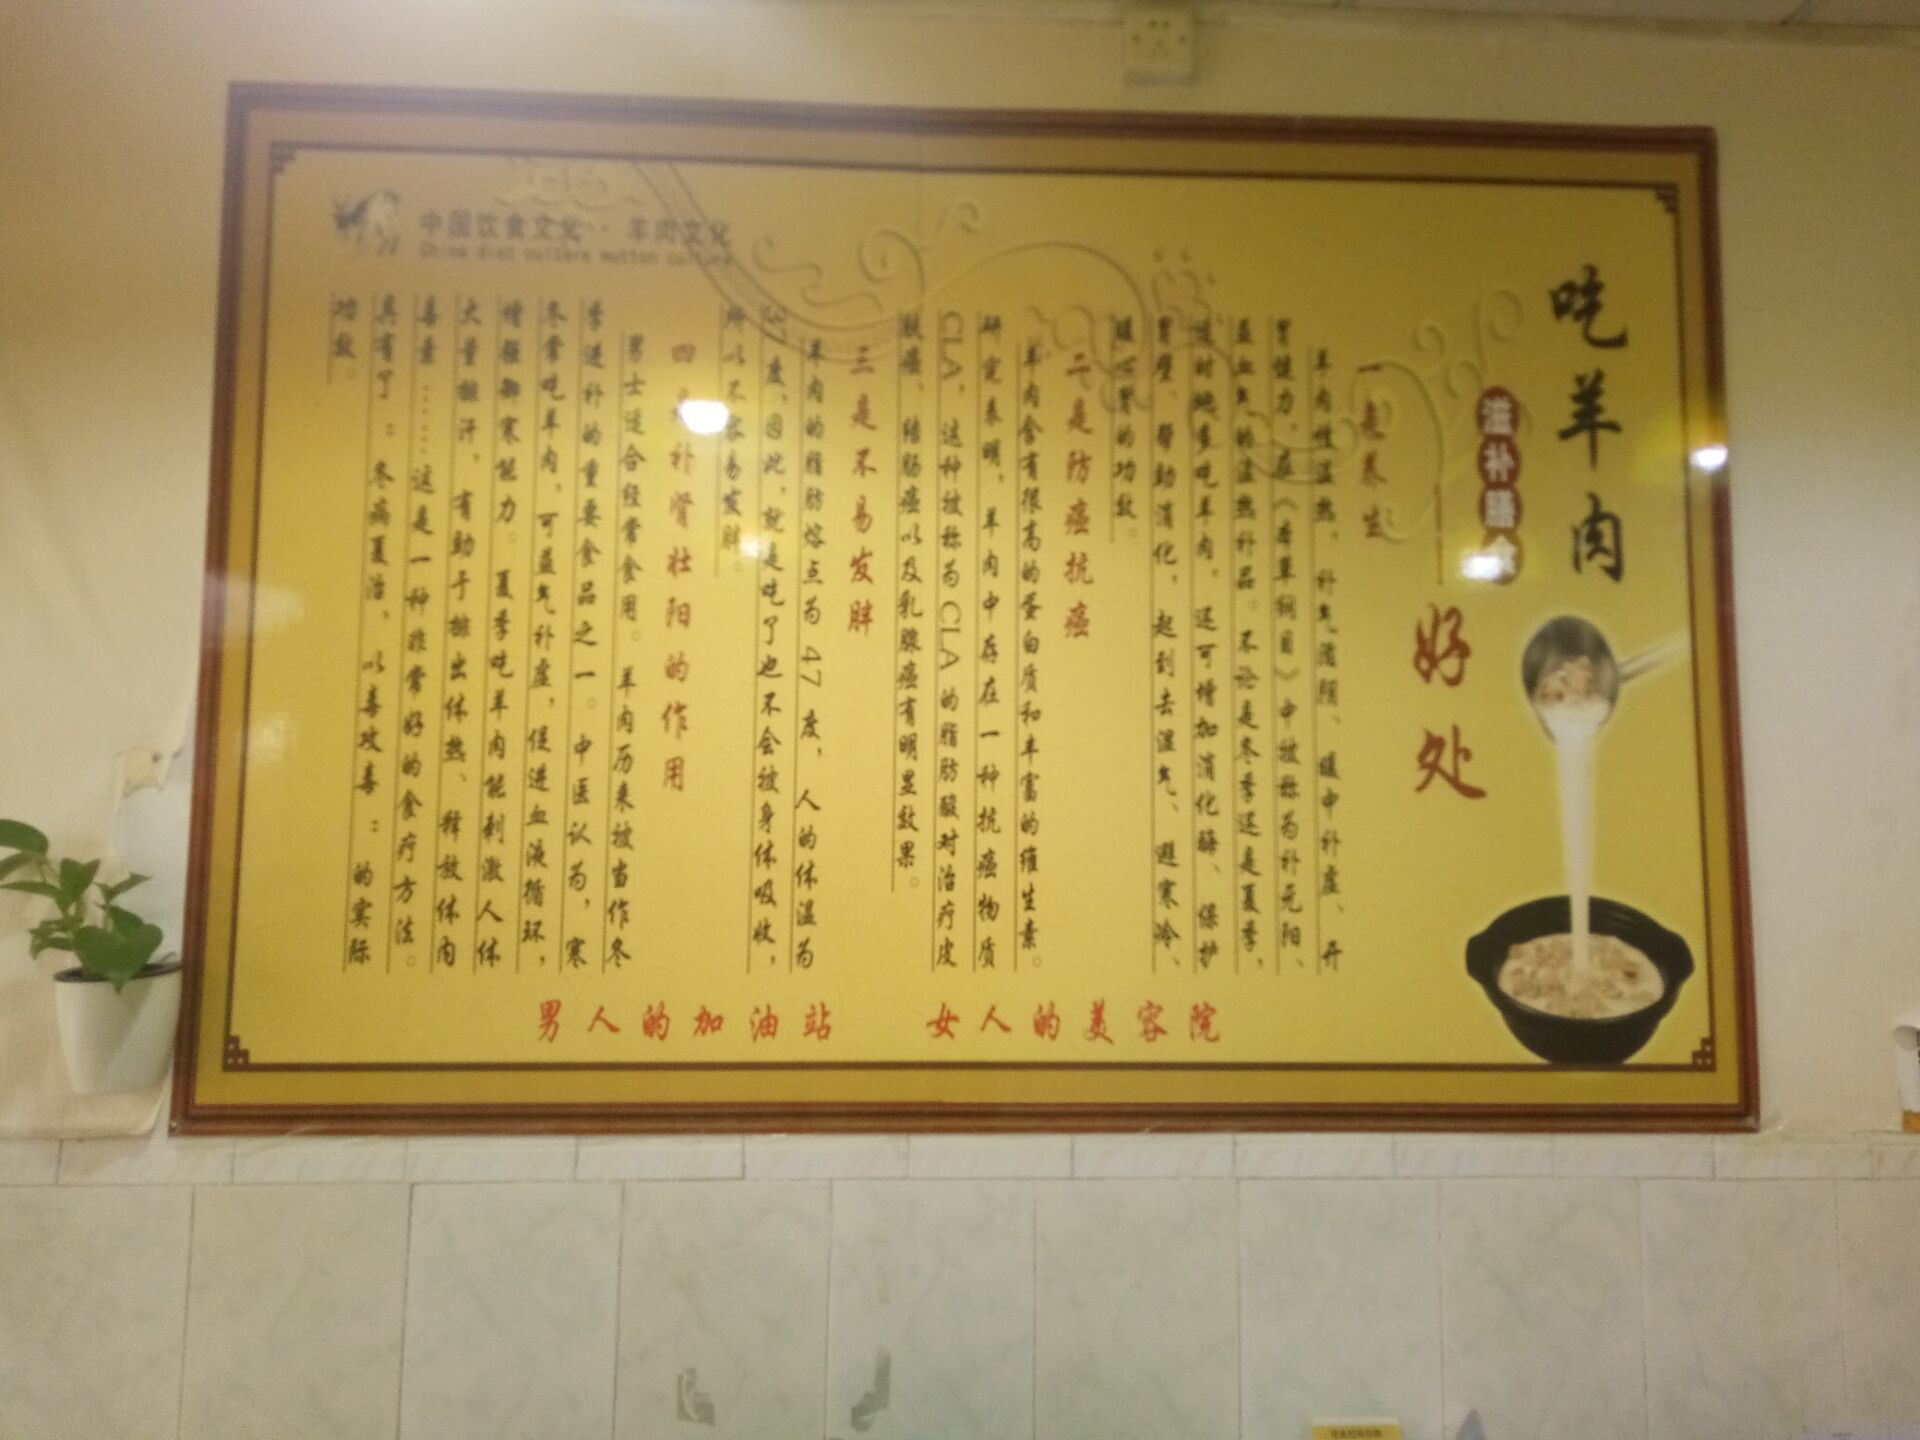 中国饮食文化··羊肉文化
China diet culture mutton culture
吃羊肉
滋补膳食
好处
一是养生
羊肉性温热，补气滋阴、暖中补虚、开
胃健力，在《本草纲目》中被称为补元阳、
益血气的温热补品。不论是冬季还是夏季，
适时地多吃羊肉，还可增加消化酶、保护
胃壁、帮助消化，起到去湿气、避寒冷、
暖心胃的功效。
二是防癌抗癌
羊肉含有很高的蛋白质和丰富的维生素。
研究表明，羊肉中存在一种抗癌物质
CLA，这种被称为CLA的脂肪酸对治疗皮
肤癌、结肠癌以及乳腺癌有明显效果。
三是不易发胖
羊肉的脂肪熔点为47度，人的体温为
37度，因此，就是吃了也不会被身体吸收，
所以不容易发胖。
四是补肾壮阳的作用
男士适合经常食用。羊肉历来被当作冬
季进补的重要食品之一。中医认为，寒
冬常吃羊肉，可益气补虚，促进血液循环，
增强御寒能力。夏季吃羊肉能刺激人体
大量排汗，有助于排出体热、释放体内
毒素……这是一种非常好的食疗方法。
具有了：冬病夏治，以毒攻毒：的实际
功效。
男人的加油站 女人的美容院